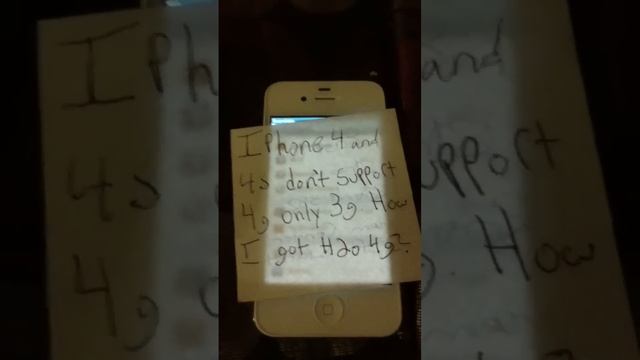 IPhone 4 and
4s don't support
4g only 3g How
I got H2o 4g?